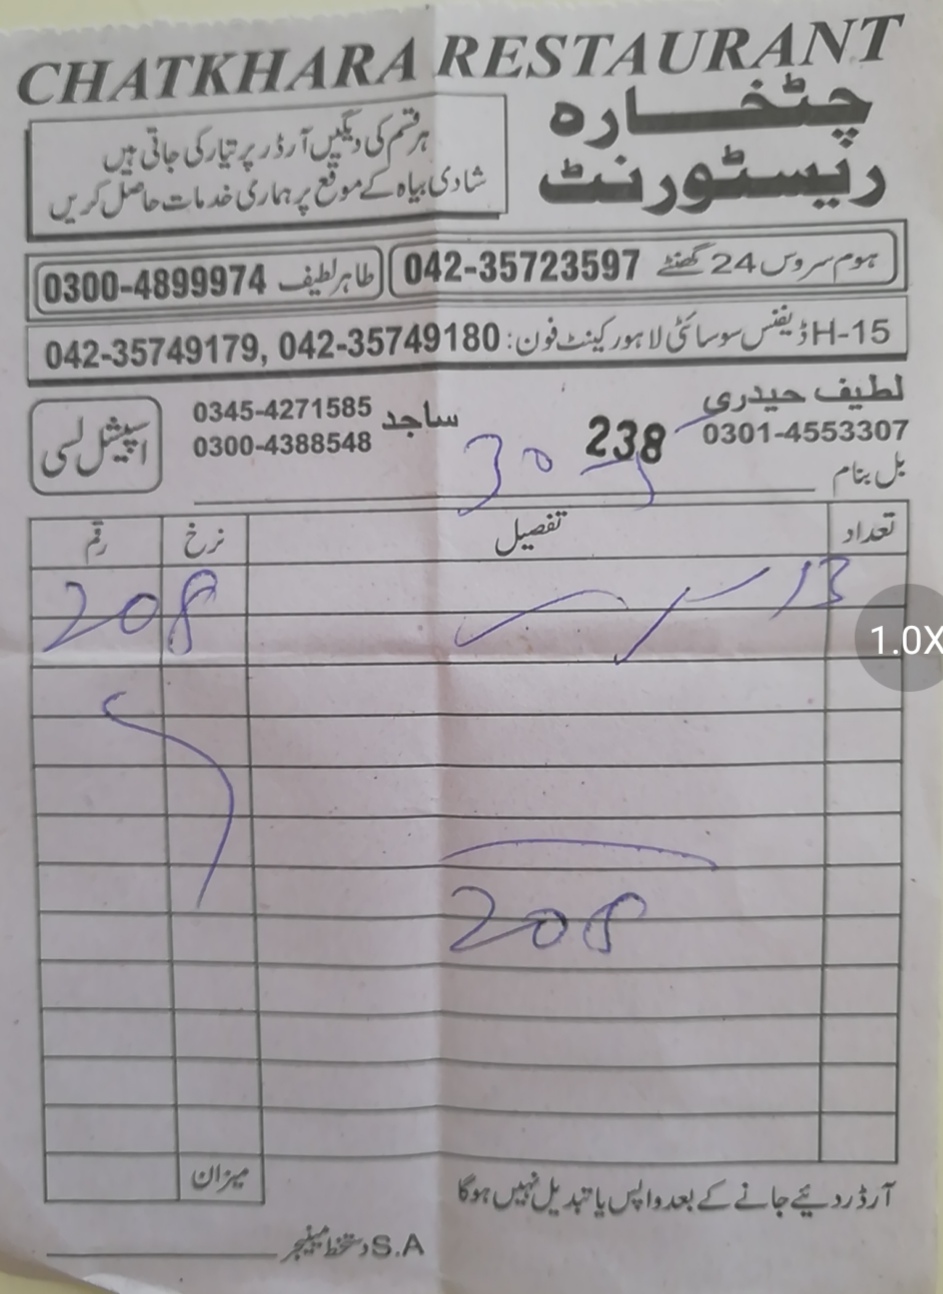 CHATKHARA RESTAURANT
چٹخارہ
ریسٹورنٹ
ہر قسم کی دیگیں آرڈر پر تیار کی جاتی ہیں
شادی بیاہ کے موقع پر ہماری خدمات حاصل کریں
ہوم سروس 24 گھنٹے 042-35723597
طاہر لطیف 0300-4899974
H-15 ڈیفنس سوسائٹی لاہور کینٹ فون: 042-35749179, 042-35749180
لطیف حیدری
0301-4553307
238
ساجد 0345-4271585
0300-4388548
اسپیشل لسی
بل بنام
تعداد تفصیل نرخ رقم
13 208
208
میزان
آرڈر دیئے جانے کے بعد واپس یا تبدیل نہیں ہوگا
S.A دستخط مینیجر
1.0X